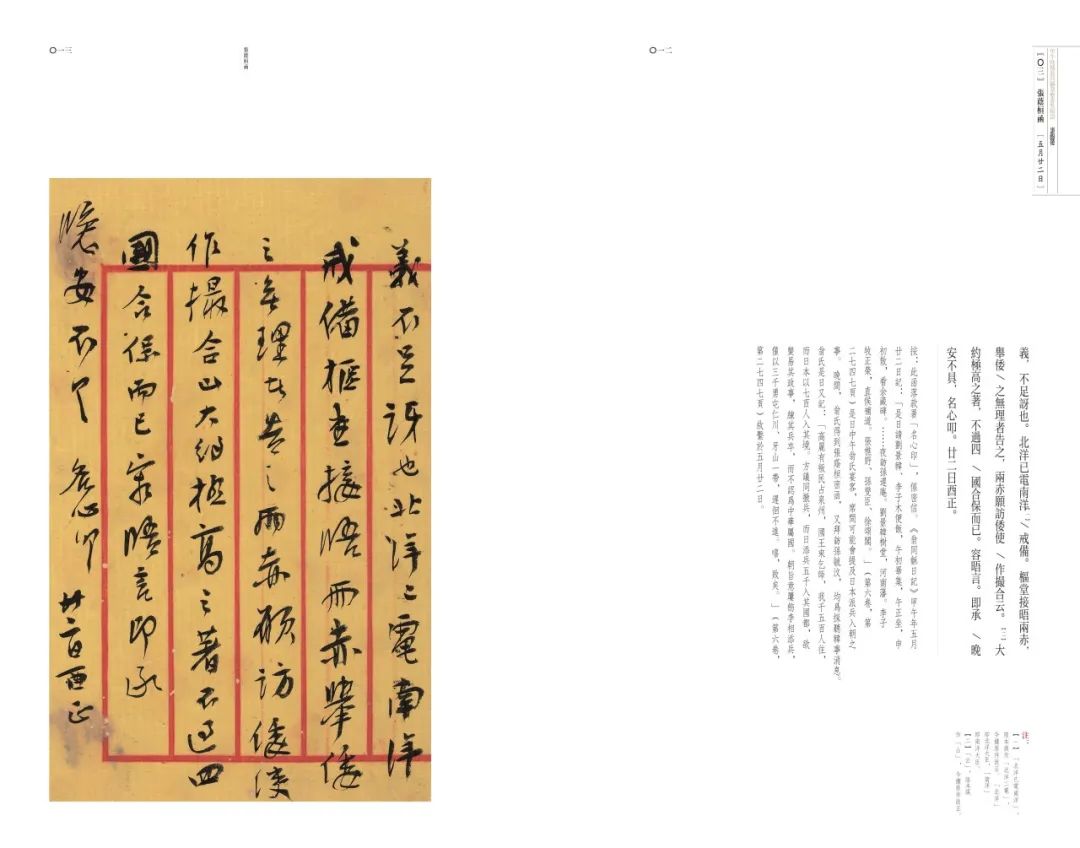 〇一二
【〇三】 張蔭桓函 [五月廿二日]
義，不足訝也。北洋已電南洋〔一〕╱戒備。樞堂接晤兩赤，
舉倭╱之無理者告之，兩赤願訪倭使╱作撮合云。〔二〕大
約極高之著，不過四╱國合保而已。容晤言。即承╱晚
安不具，名心叩。廿二日酉正。
按：此函落款署「名心印」，係密信。《翁同龢日記》甲午年五月
廿二日記：「是日請劉景韓、李子木便飯，午初畢集，午正坐，申
初散，看余藏碑。……夜訪孫遲庵。劉景韓樹堂，河南藩。李子
牧正榮，直候補道。張樵野、孫燮臣、徐頌閣。」（第六卷，第
二七四七頁）是日中午翁氏宴客，席間可能會提及日本派兵入朝之
事。晚間，翁氏得到張蔭桓密函，又拜訪孫毓汶，均為探聽韓事消息。
翁氏是日又記：「高麗有叛民占泉州，國王來乞師，我千五百人往，
而日本以七百人入其境。方議同撤兵，而日添兵五千入其國都，欲
變易其政事，練其兵卒，而不認為中華屬國。朝旨意屢飭李相添兵，
僅以三千勇屯仁川、牙山一帶，遲徊不進。嘻，敗矣。」（第六卷，
第二七四七頁）故繫於五月廿二日。
註：
【一】「北洋已電南洋」，
即北洋大臣，「南洋」
即南洋大臣。
【二】「云」，原本誤
作「山」，今據原件改正。
〇一三
張蔭桓函
義不足訝也北洋已電南洋
戒備樞堂接晤兩赤舉倭
之無理者告之兩赤願訪倭使
作撮合山大約極高之著不過四
國合保而已容晤言即承
晚安不具 名心叩 廿二日酉正